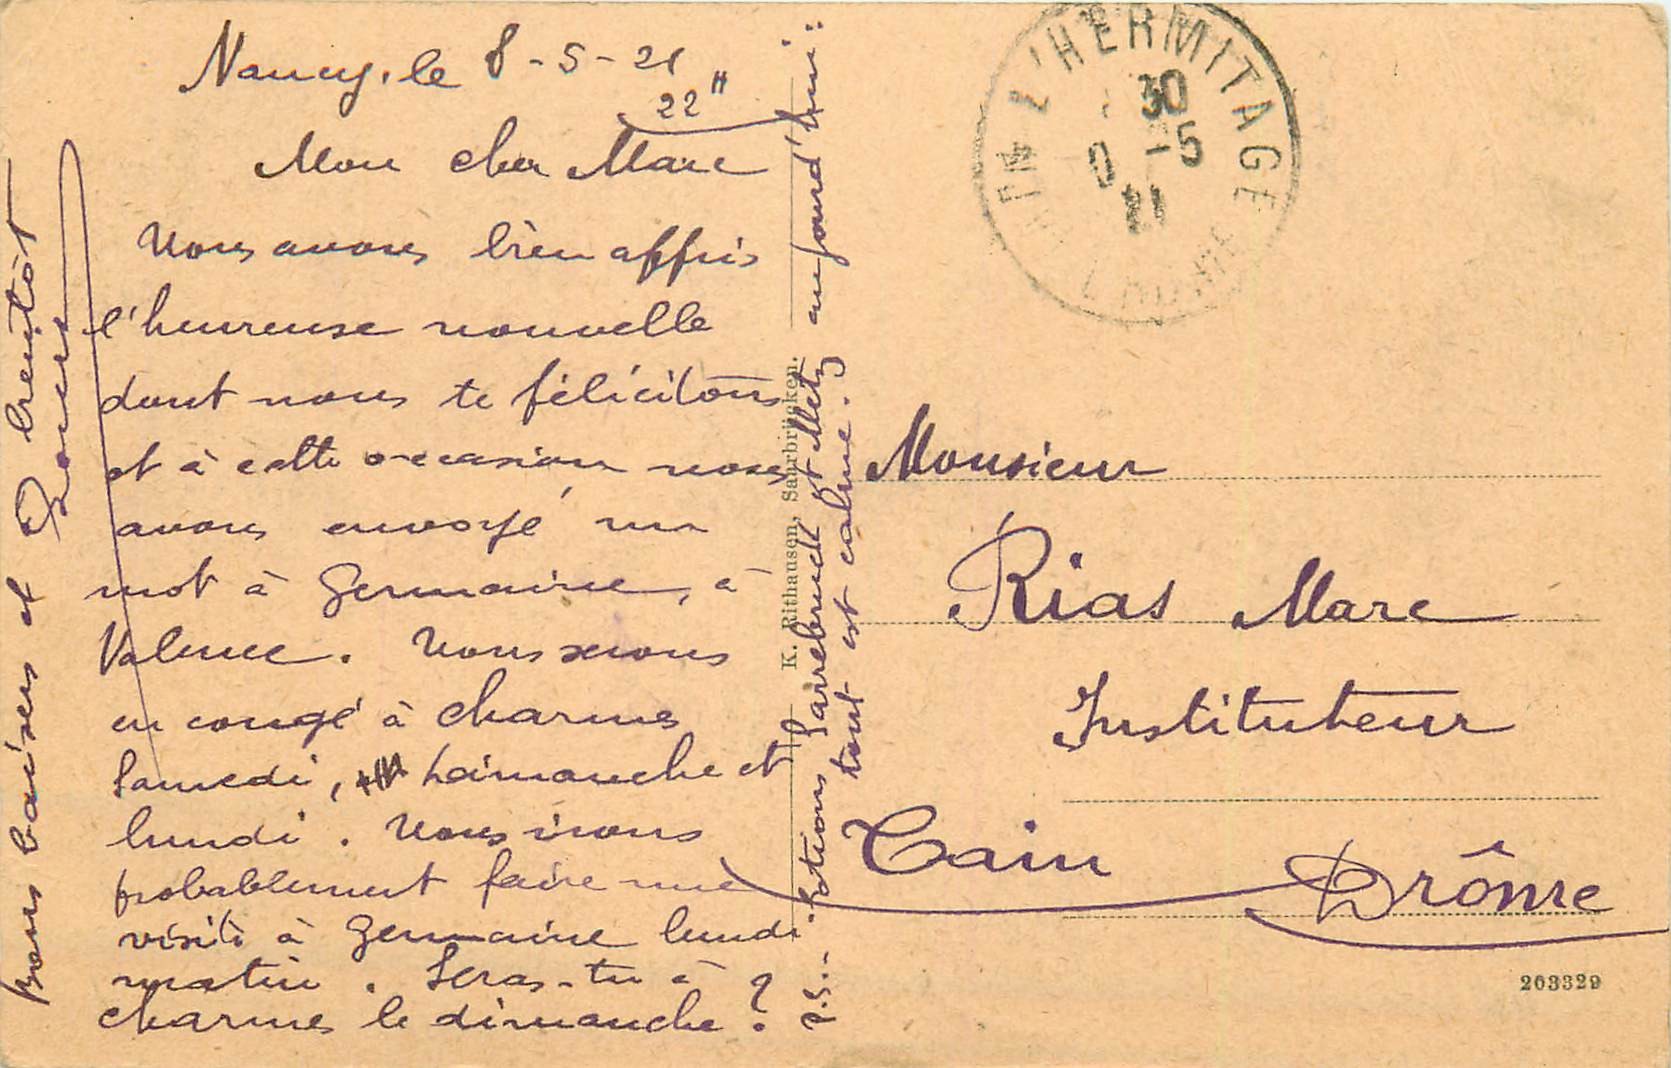 Nancy, le 8-5-21
22 H
Mon cher Marc
Nous avons bien appris
l'heureuse nouvelle
dont nous te félicitons
et à cette occasion nous
avons envoyé un
mot à Germaine, à
Valence. Nous serons
en congé à Charmes
Samedi, Dimanche et
lundi. Nous irons
probablement faire une
visite à Germaine lundi
matin. Seras-tu à
Charmes le dimanche ?
bons baisers et bientôt
P.S. - Sarrebruck et Metz aujourd'hui :
tout est calme.
K. Rithausen, Saarbrücken.
L'HERMITAGE
30
-5
21
DRÔME
Monsieur
Rias Marc
Instituteur
Tain
Drôme
203329